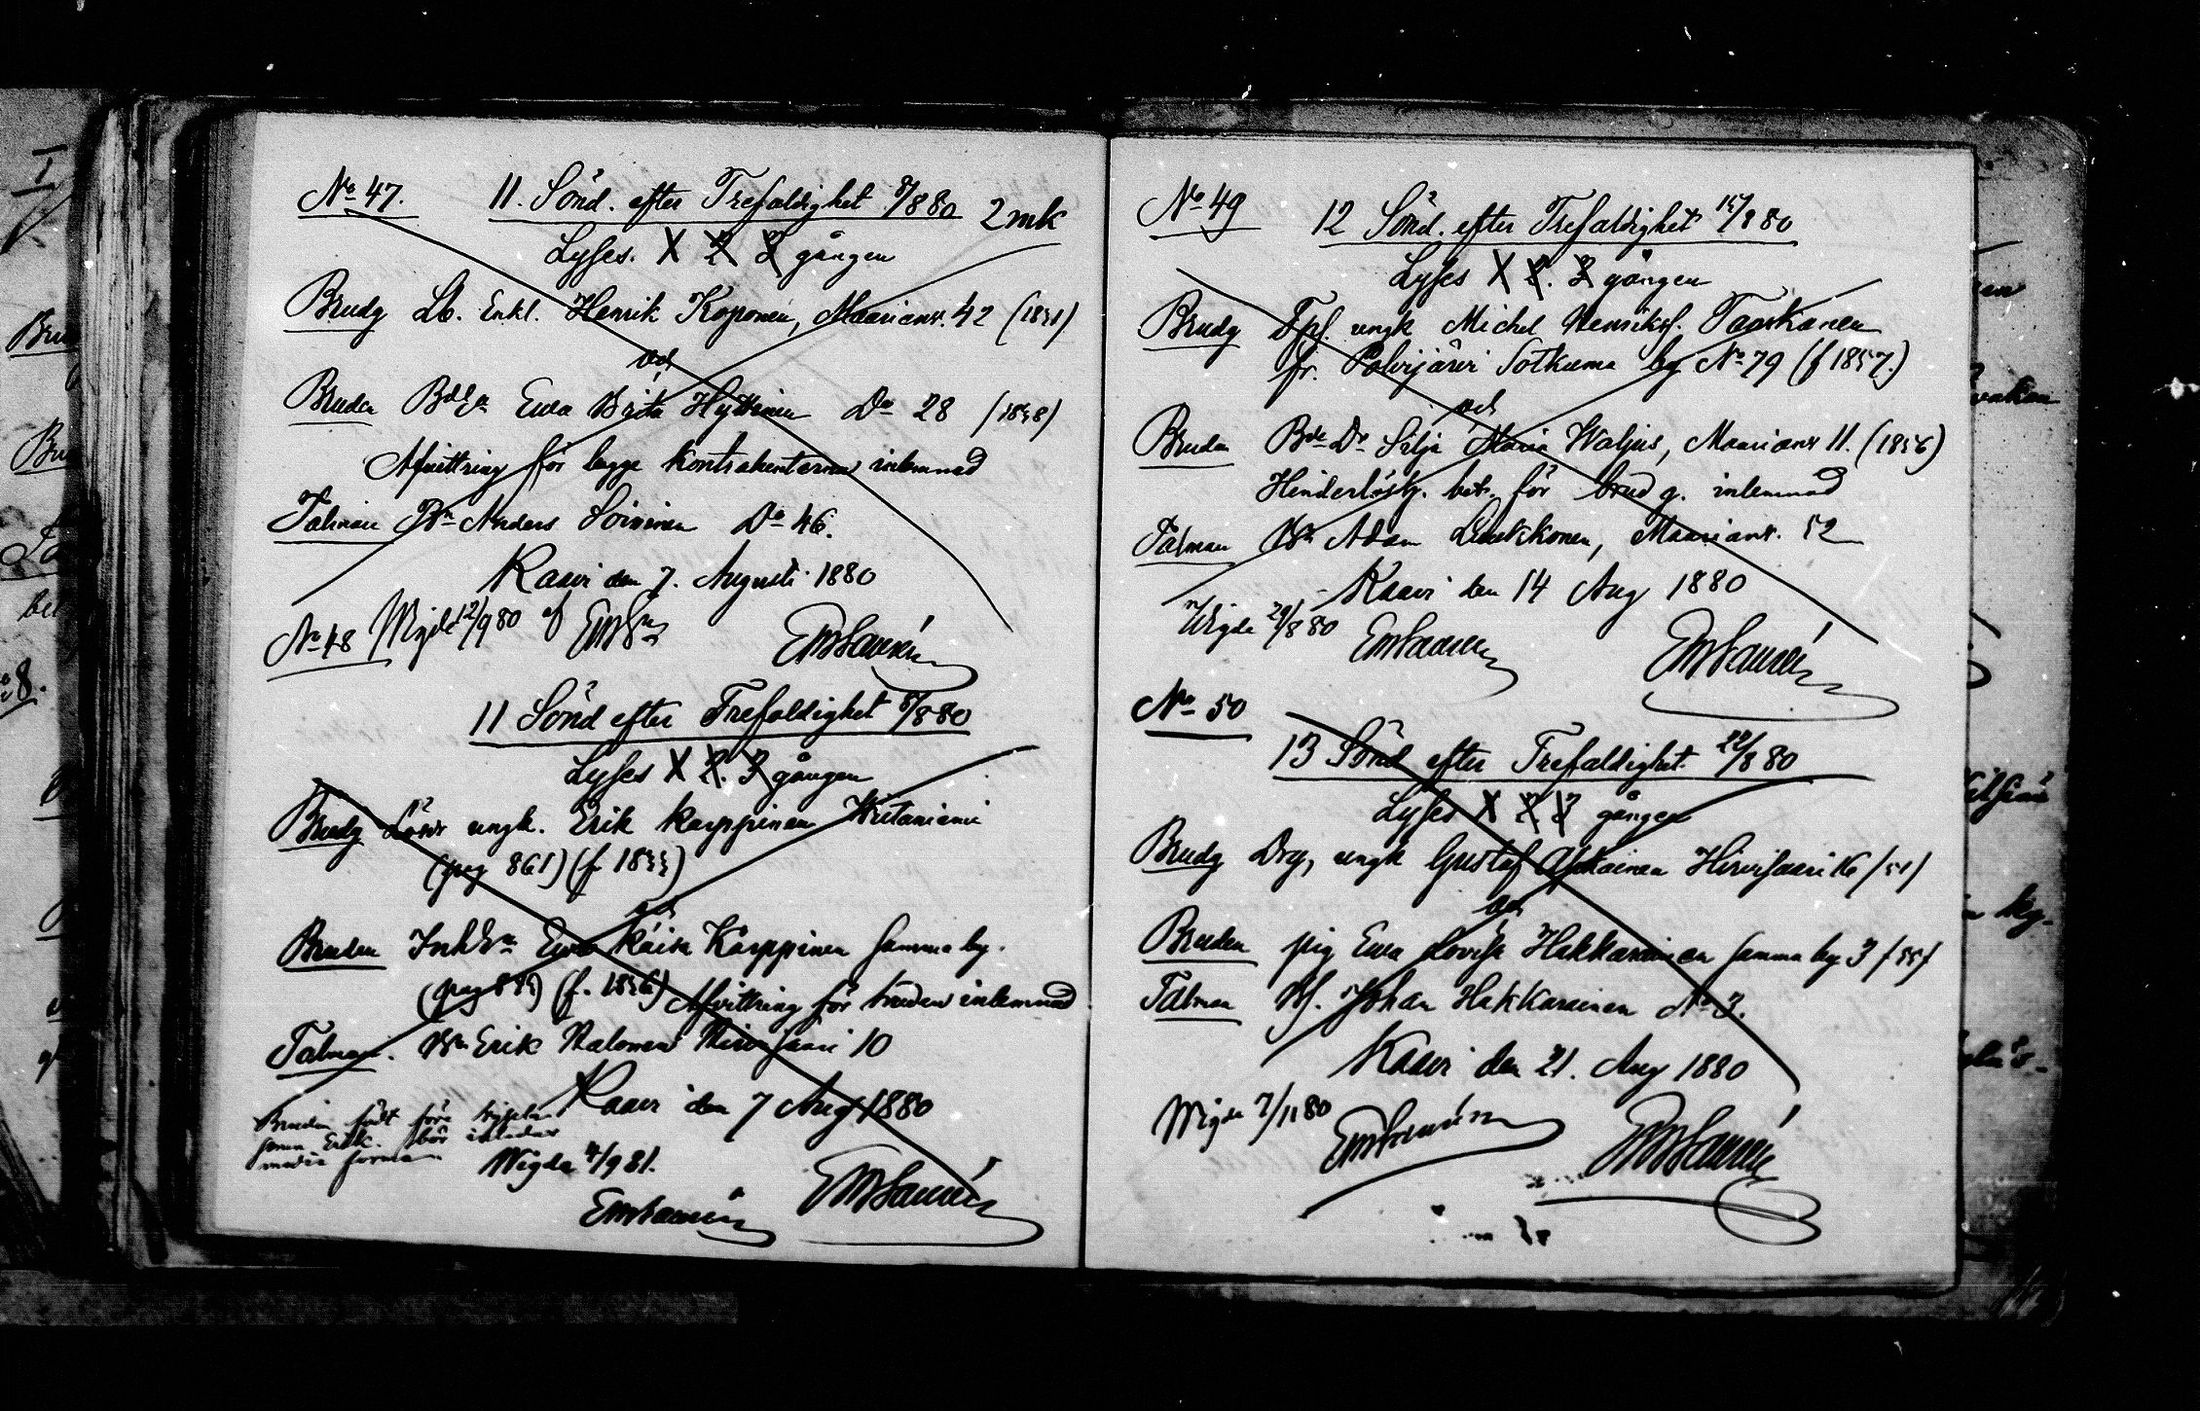 No 47. 11. Sönd. efter Trefaldighet 8/880 2 mk
Lyses. X 2 3 gången
Brudg Lb. Enkl. Henrik Koponen, Maarianv. 42 (1831)
och
Bruden Ewa Brita Hyttinen Do 28 (1838)
Afvittring för begge kontrahenterna inlemnad
Talman Bn Anders Soininen Do 46.
Kaavi den 7. Augusti 1880
No 48 Wigde 12/9 80 af
EMSaurén
11 Sönd efter Trefaldighet 8/880
Lyses X 2. 3 gången
Brudg Lösdr ungk. Erik Karppinen
(pag 861) (f 1855)
och
Bruden Ewa Kaisa Karppinen samma by.
(f. 1856) Afvittring för bruden inlemnad
Talman. Bn Erik Halonen Hirvisaari 10
Kaavi den 7 Aug 1880
Bruden född före
Wigda /9 81.
EMSaurén EMSaurén
No 49 12 Sönd. efter Trefaldighet 15/880
Lyses X 2. 3 gången
Brudg ungk Michel Henriks. Taskanen
fr. Polvijärvi Sotkuma by No 79 (f 1857.)
och
Bruden Silja Maria Waljus, Maarianv 11. (1856)
Hinderlösh. bet. för brudg. inlemnad
Talman Bn Adam Leukkonen, Maarianv. 52
Kaavi den 14 Aug 1880
Wigde 29/8 80 EMSaurén EMSaurén
No 50
13 Sönd efter Trefaldighet 22/8 80
Lyses X 2 3 gången
Brudg Drg, ungk Gustaf Hirvisaari 16 /51/
och
Bruden pig Ewa Lovisa Hakkarainen samma by 3 /55/
Talman Johan Hakkarainen No 3.
Kaavi den 21. Aug 1880
Wigde 7/11 80 EMSaurén EMSaurén